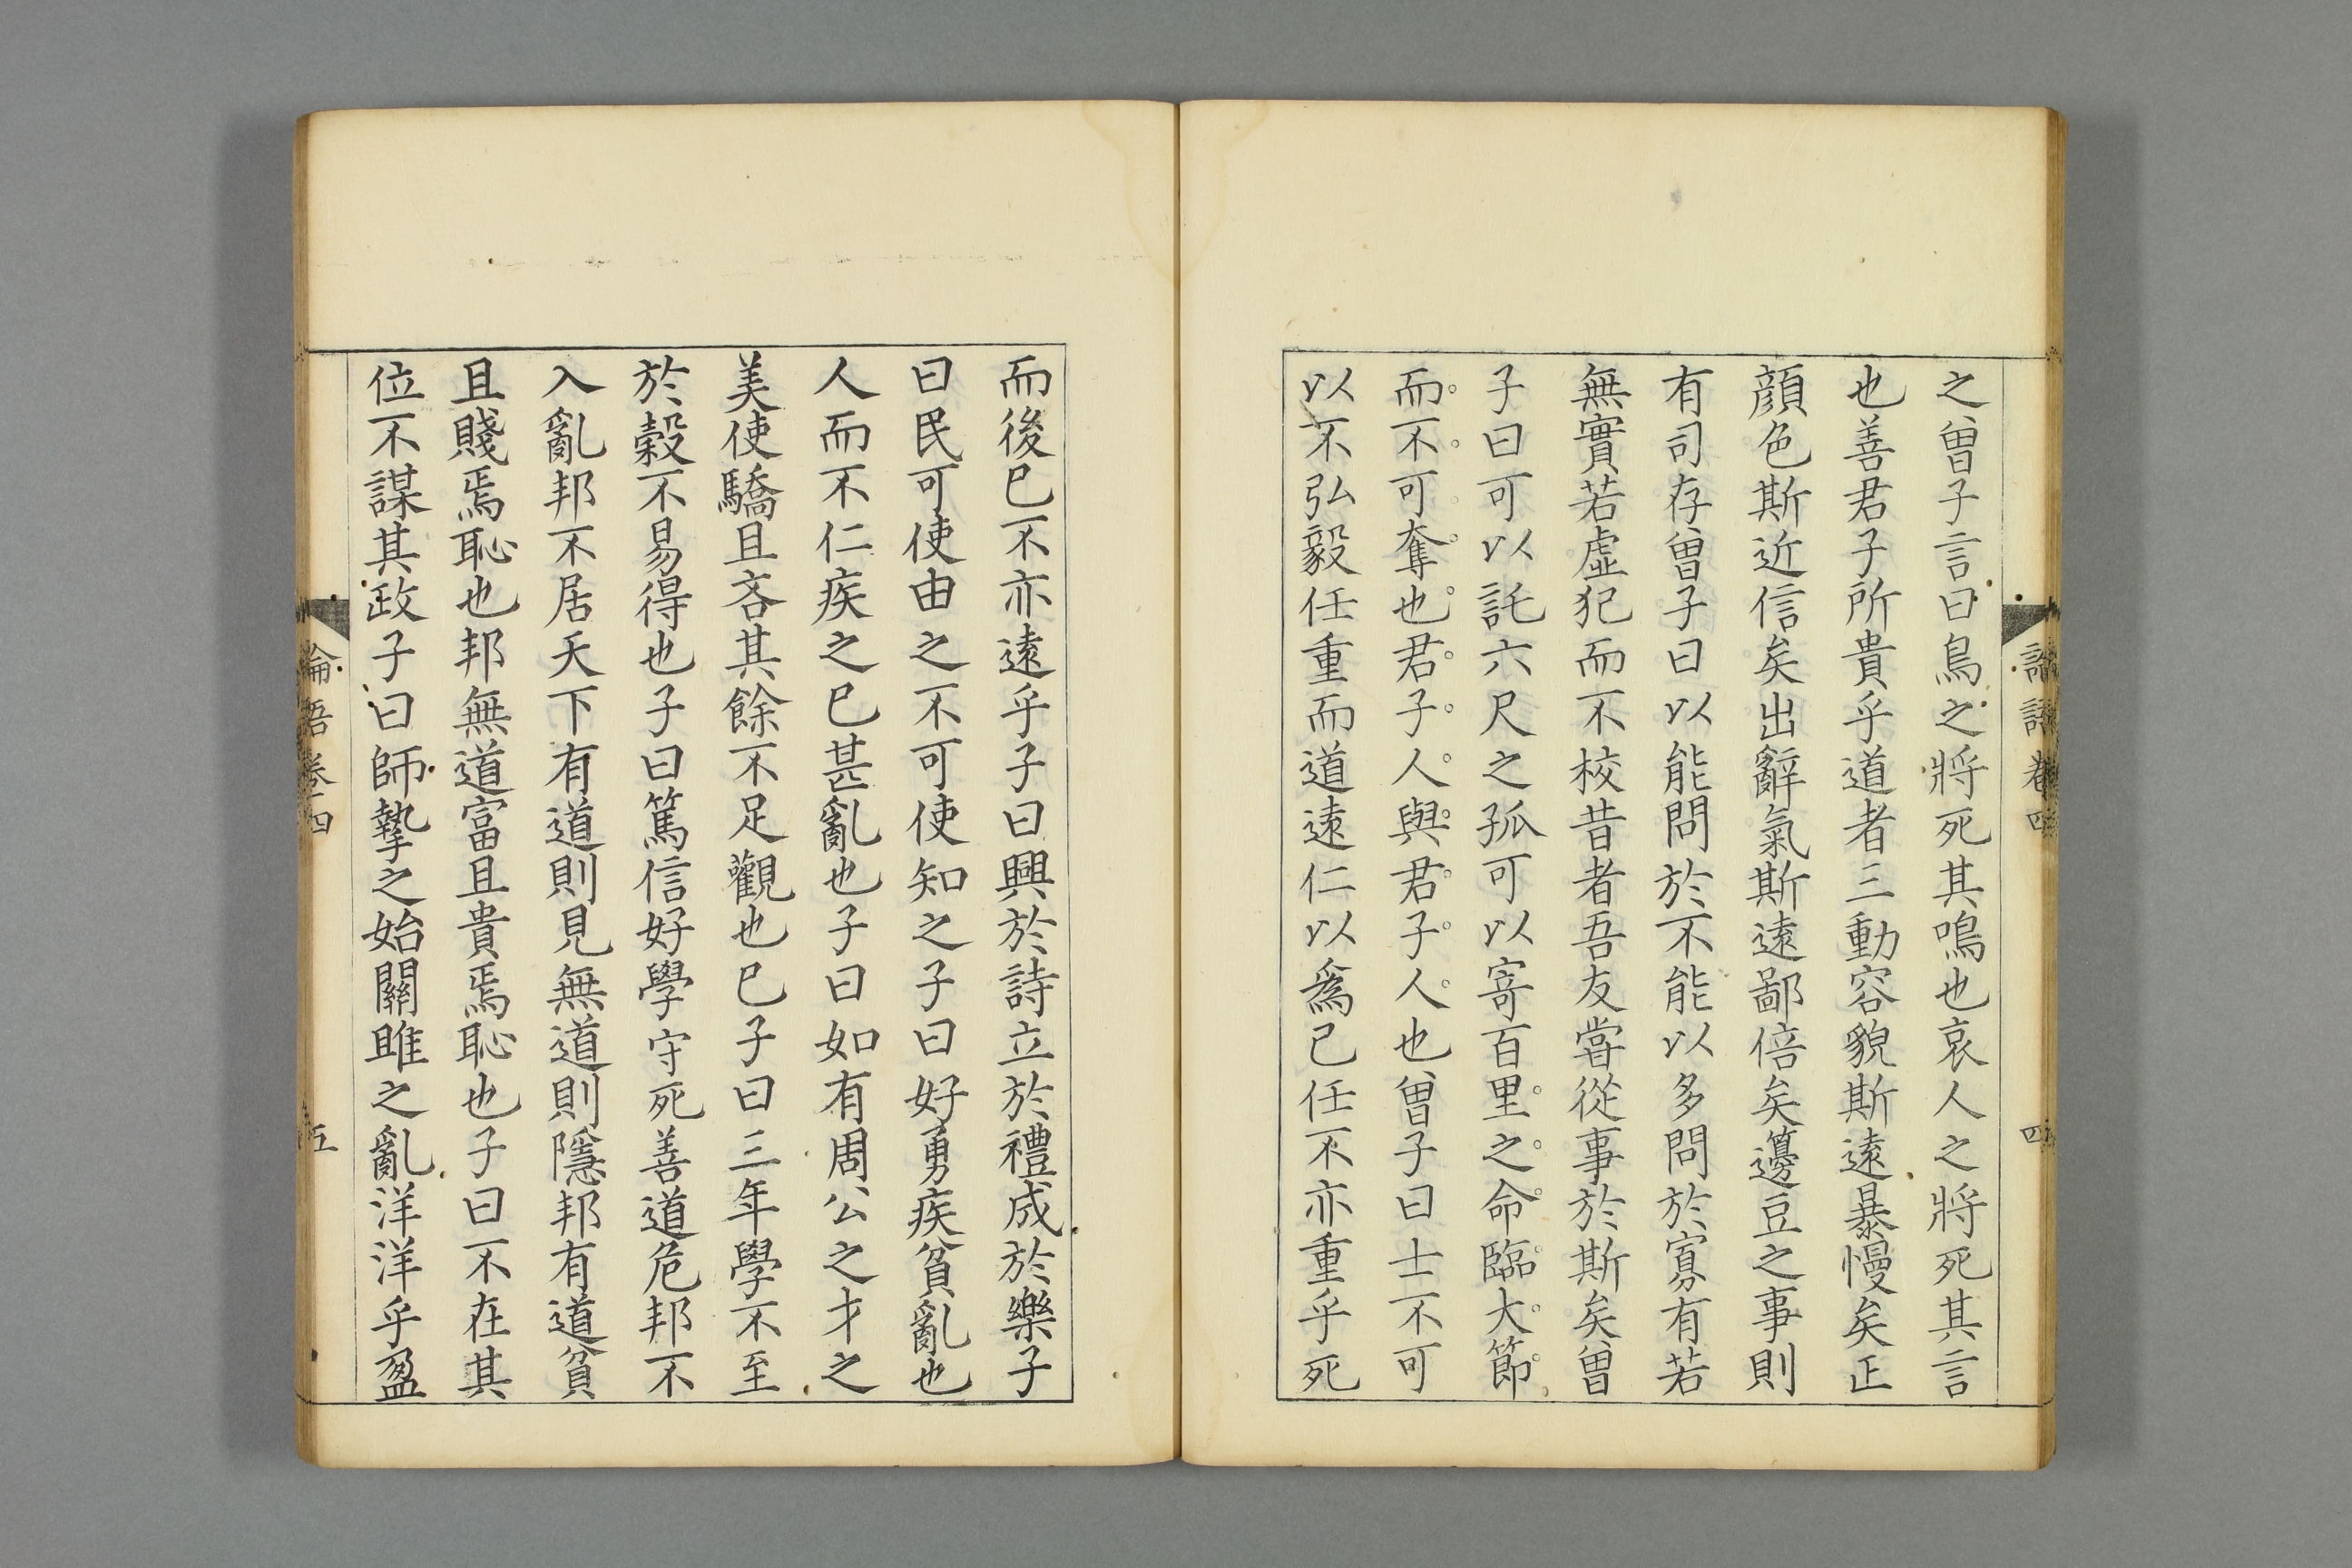 論語卷四
四
之曾子言曰鳥之將死其鳴也哀人之將死其言
也善君子所貴乎道者三動容貌斯遠暴慢矣正
顏色斯近信矣出辭氣斯遠鄙倍矣籩豆之事則
有司存曾子曰以能問於不能以多問於寡有若
無實若虛犯而不校昔者吾友嘗從事於斯矣曾
子曰可以託六尺之孤可以寄百里之命臨大節
而不可奪也君子人與君子人也曾子曰士不可
以不弘毅任重而道遠仁以爲己任不亦重乎死
而後已不亦遠乎子曰興於詩立於禮成於樂子
曰民可使由之不可使知之子曰好勇疾貧亂也
人而不仁疾之已甚亂也子曰如有周公之才之
美使驕且吝其餘不足觀也已子曰三年學不至
於穀不易得也子曰篤信好學守死善道危邦不
入亂邦不居天下有道則見無道則隱邦有道貧
且賤焉恥也邦無道富且貴焉恥也子曰不在其
位不謀其政子曰師摯之始關雎之亂洋洋乎盈
論語卷四
五